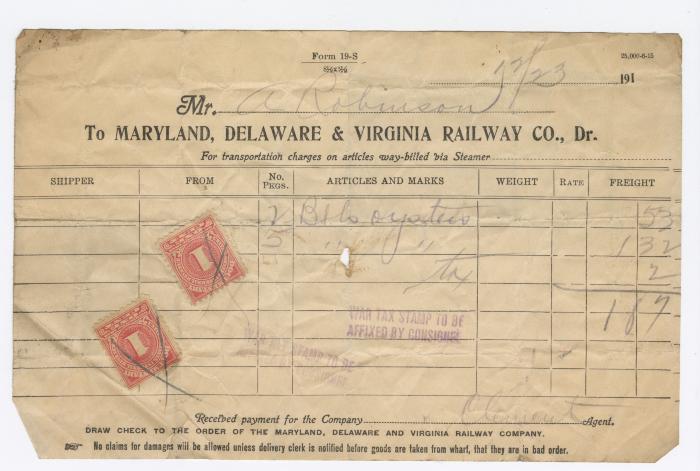 Form 19-S
8½x5½
25,000-6-15
12/23 191
Mr. A Robinson
To MARYLAND, DELAWARE & VIRGINIA RAILWAY CO., Dr.
For transportation charges on articles way-billed via Steamer
SHIPPER FROM No. PKGS. ARTICLES AND MARKS WEIGHT RATE FREIGHT
2 Bbls oysters 53
5 " " 132
tax 2
187
WAR TAX STAMP TO BE
AFFIXED BY CONSIGNEE
WAR TAX STAMP TO BE
1
1
Received payment for the Company Clement Agent.
DRAW CHECK TO THE ORDER OF THE MARYLAND, DELAWARE AND VIRGINIA RAILWAY COMPANY.
No claims for damages will be allowed unless delivery clerk is notified before goods are taken from wharf, that they are in bad order.